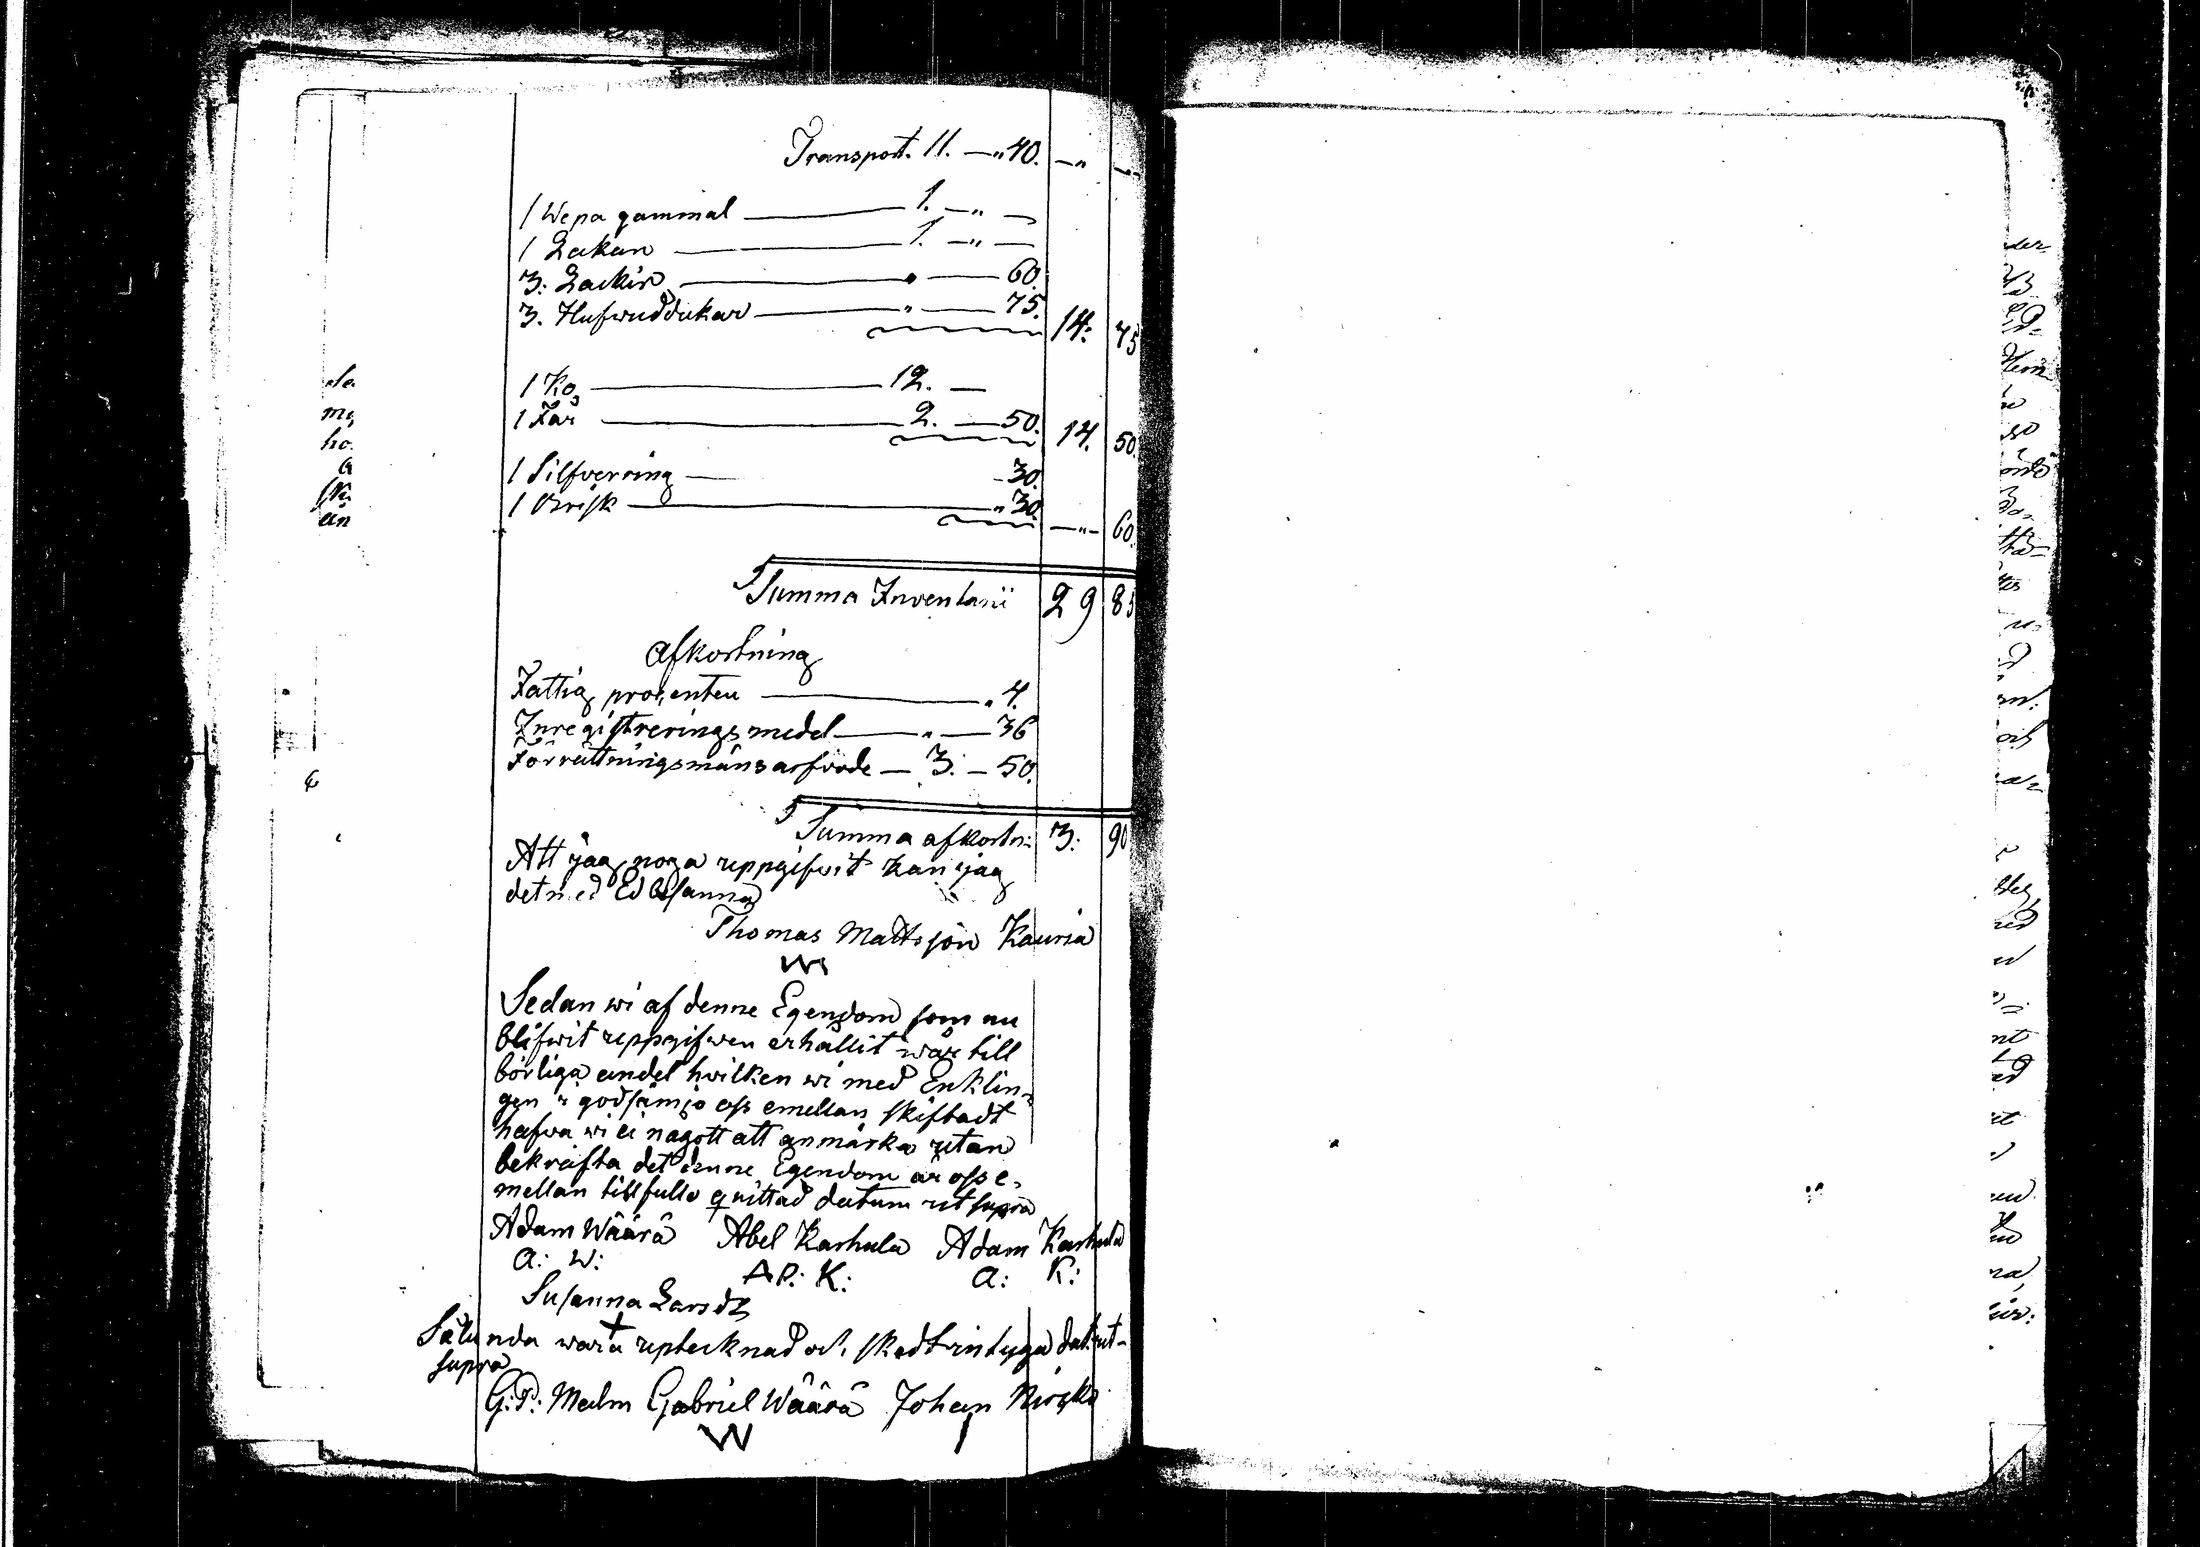 Transport. 11. — „ 40. — „ —
1 Wepa gammal — 1. — „ —
1 Lakan — 1. — „ —
3: Lackin — „ — 60.
3. Hufwuddukar — „ — 75. 14: 75
1 Ko — 12. —
1 Får — 2. — 50. 14. 50
1 Silfverring — 30.
1 Brisk — „ 30. — „ — 60.
Summa Inventarii 29 85
Afkortning
Fattig procenten — „ 4.
Inregistreringsmedel — „ — 36
Förrättningsmäns arfvode — 3. — 50.
Summa afkortn: 3: 90
Att jag noga uppgifwit kan jag
det med Ed besanna
Thomas Mattsson Kauria
Sedan wi af denne Egendom som nu
blifwit uppgifwen erhållit wår till
börliga andel hvilken wi med Enklin-
gen i godsämjo oss emellan skiftadt
hafwa wi ei något att anmärka utan
bekräfta det denne Egendom är oss e-
mellan tillfullo quittad datum ut supra
Adam Wäärä Abel Karhula Adam Karhula
A: W: AP: K: A: K:
Susanna Larsdr
Sålunda wara uptecknad och skedt intyga dat: ut-
supra
G: P: Malm Gabriel Wäärä Johan
W